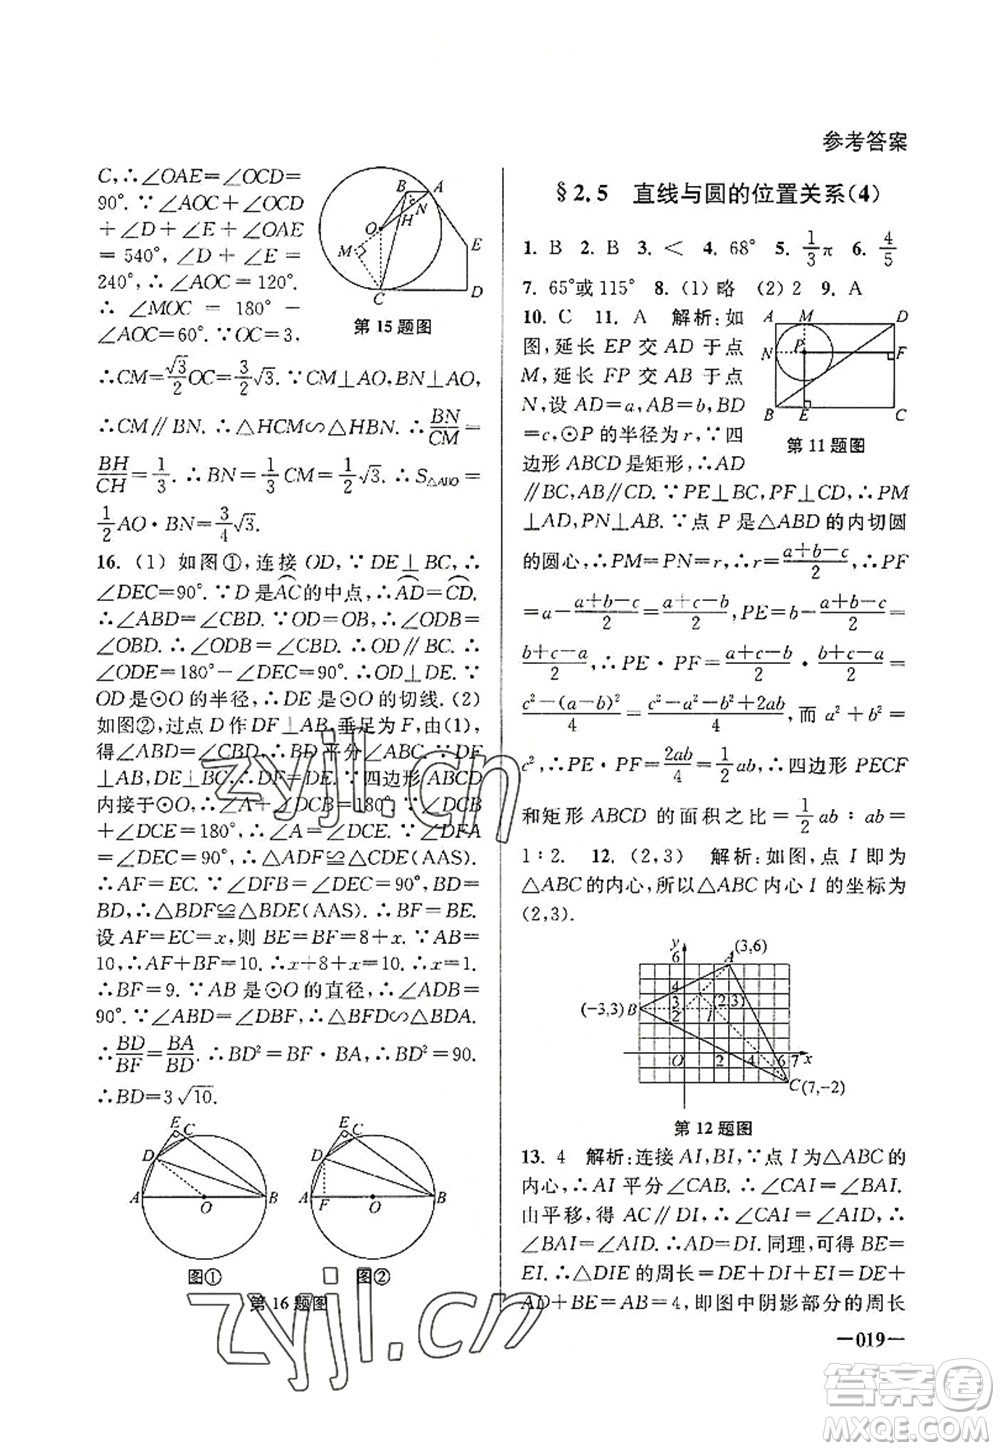 参考答案
C,∴∠OAE=∠OCD=
90°.∵∠AOC+∠OCD
+∠D+∠E+∠OAE
=540°,∠D+∠E=
240°,∴∠AOC=120°.
∴∠MOC=180°-
∠AOC=60°.∵OC=3,
∴CM=√3/2 OC=3/2 √3.∵CM⊥AO,BN⊥AO,
∴CM∥BN.∴△HCM∽△HBN.∴BN/CM=
BH/CH=1/3.∴BN=1/3 CM=1/2 √3.∴S△ABO=
1/2 AO·BN=3/4 √3.
B A N O H M E C D
第15题图
16.(1) 如图①,连接OD,∵DE⊥BC,∴
∠DEC=90°.∵D是⌒AC的中点,∴⌒AD=⌒CD.
∴∠ABD=∠CBD.∵OD=OB,∴∠ODB=
∠OBD.∴∠ODB=∠CBD.∴OD∥BC.∴
∠ODE=180°-∠DEC=90°.∴OD⊥DE.∵
OD是⊙O的半径,∴DE是⊙O的切线.(2)
如图②,过点D作DF⊥AB,垂足为F,由(1),
得∠ABD=∠CBD,∴BD平分∠ABC.∵DF
⊥AB,DE⊥BC,∴DF=DE.∵四边形ABCD
内接于⊙O,∴∠A+∠DCB=180°.∵∠DCB
+∠DCE=180°,∴∠A=∠DCE.∵∠DFA
=∠DEC=90°,∴△ADF≌△CDE(AAS).
∴AF=EC.∵∠DFB=∠DEC=90°,BD=
BD,∴△BDF≌△BDE(AAS).∴BF=BE.
设AF=EC=x,则BE=BF=8+x.∵AB=
10,∴AF+BF=10.∴x+8+x=10.∴x=1.
∴BF=9.∵AB是⊙O的直径,∴∠ADB=
90°.∵∠ABD=∠DBF,∴△FBD∽△BDA.
∴BD/BF=BA/BD.∴BD²=BF·BA.∴BD²=90.
∴BD=3√10.
E C D A O B
图①
E C D A F O B
图②
第16题图
§2.5 直线与圆的位置关系(4)
1. B 2. B 3. < 4. 68° 5. 1/3 π 6. 4/5
7. 65°或115° 8. (1) 略 (2) 2 9. A
10. C 11. A 解析:如
图,延长EP交AD于点
M,延长FP交AB于点
N,设AD=a,AB=b,BD
=c,⊙P的半径为r,∵四
边形ABCD是矩形,∴AD
A M D N P F B E C
第11题图
∥BC,AB∥CD.∵PE⊥BC,PF⊥CD,∴PM
⊥AD,PN⊥AB.∵点P是△ABD的内切圆
的圆心,∴PM=PN=r,∴r=(a+b-c)/2.∴PF
=a-(a+b-c)/2=(a+c-b)/2,PE=b-(a+b-c)/2=
(b+c-a)/2.∴PE·PF=(a+c-b)/2·(b+c-a)/2=
(c²-(a-b)²)/4=(c²-a²-b²+2ab)/4,而a²+b²=
c²,∴PE·PF=2ab/4=1/2 ab,∴四边形PECF
和矩形ABCD的面积之比=1/2 ab∶ab=
1∶2. 12. (2,3) 解析:如图,点I即为
△ABC的内心,所以△ABC内心I的坐标为
(2,3).
y 6 A (3,6) 4 3 2 (2,3) I (-3,3) B O 2 4 6 7 x C(7,-2)
第12题图
13. 4 解析:连接AI,BI,∵点I为△ABC的
内心,∴AI平分∠CAB.∴∠CAI=∠BAI.
由平移,得AC∥DI,∴∠CAI=∠AID.∴
∠BAI=∠AID.∴AD=DI.同理,可得BE=
EI.∴△DIE的周长=DE+DI+EI=DE+
AD+BE=AB=4,即图中阴影部分的周长
—019—
zyjl.cn
zyjl.cn
答案圈
MXQE.COM